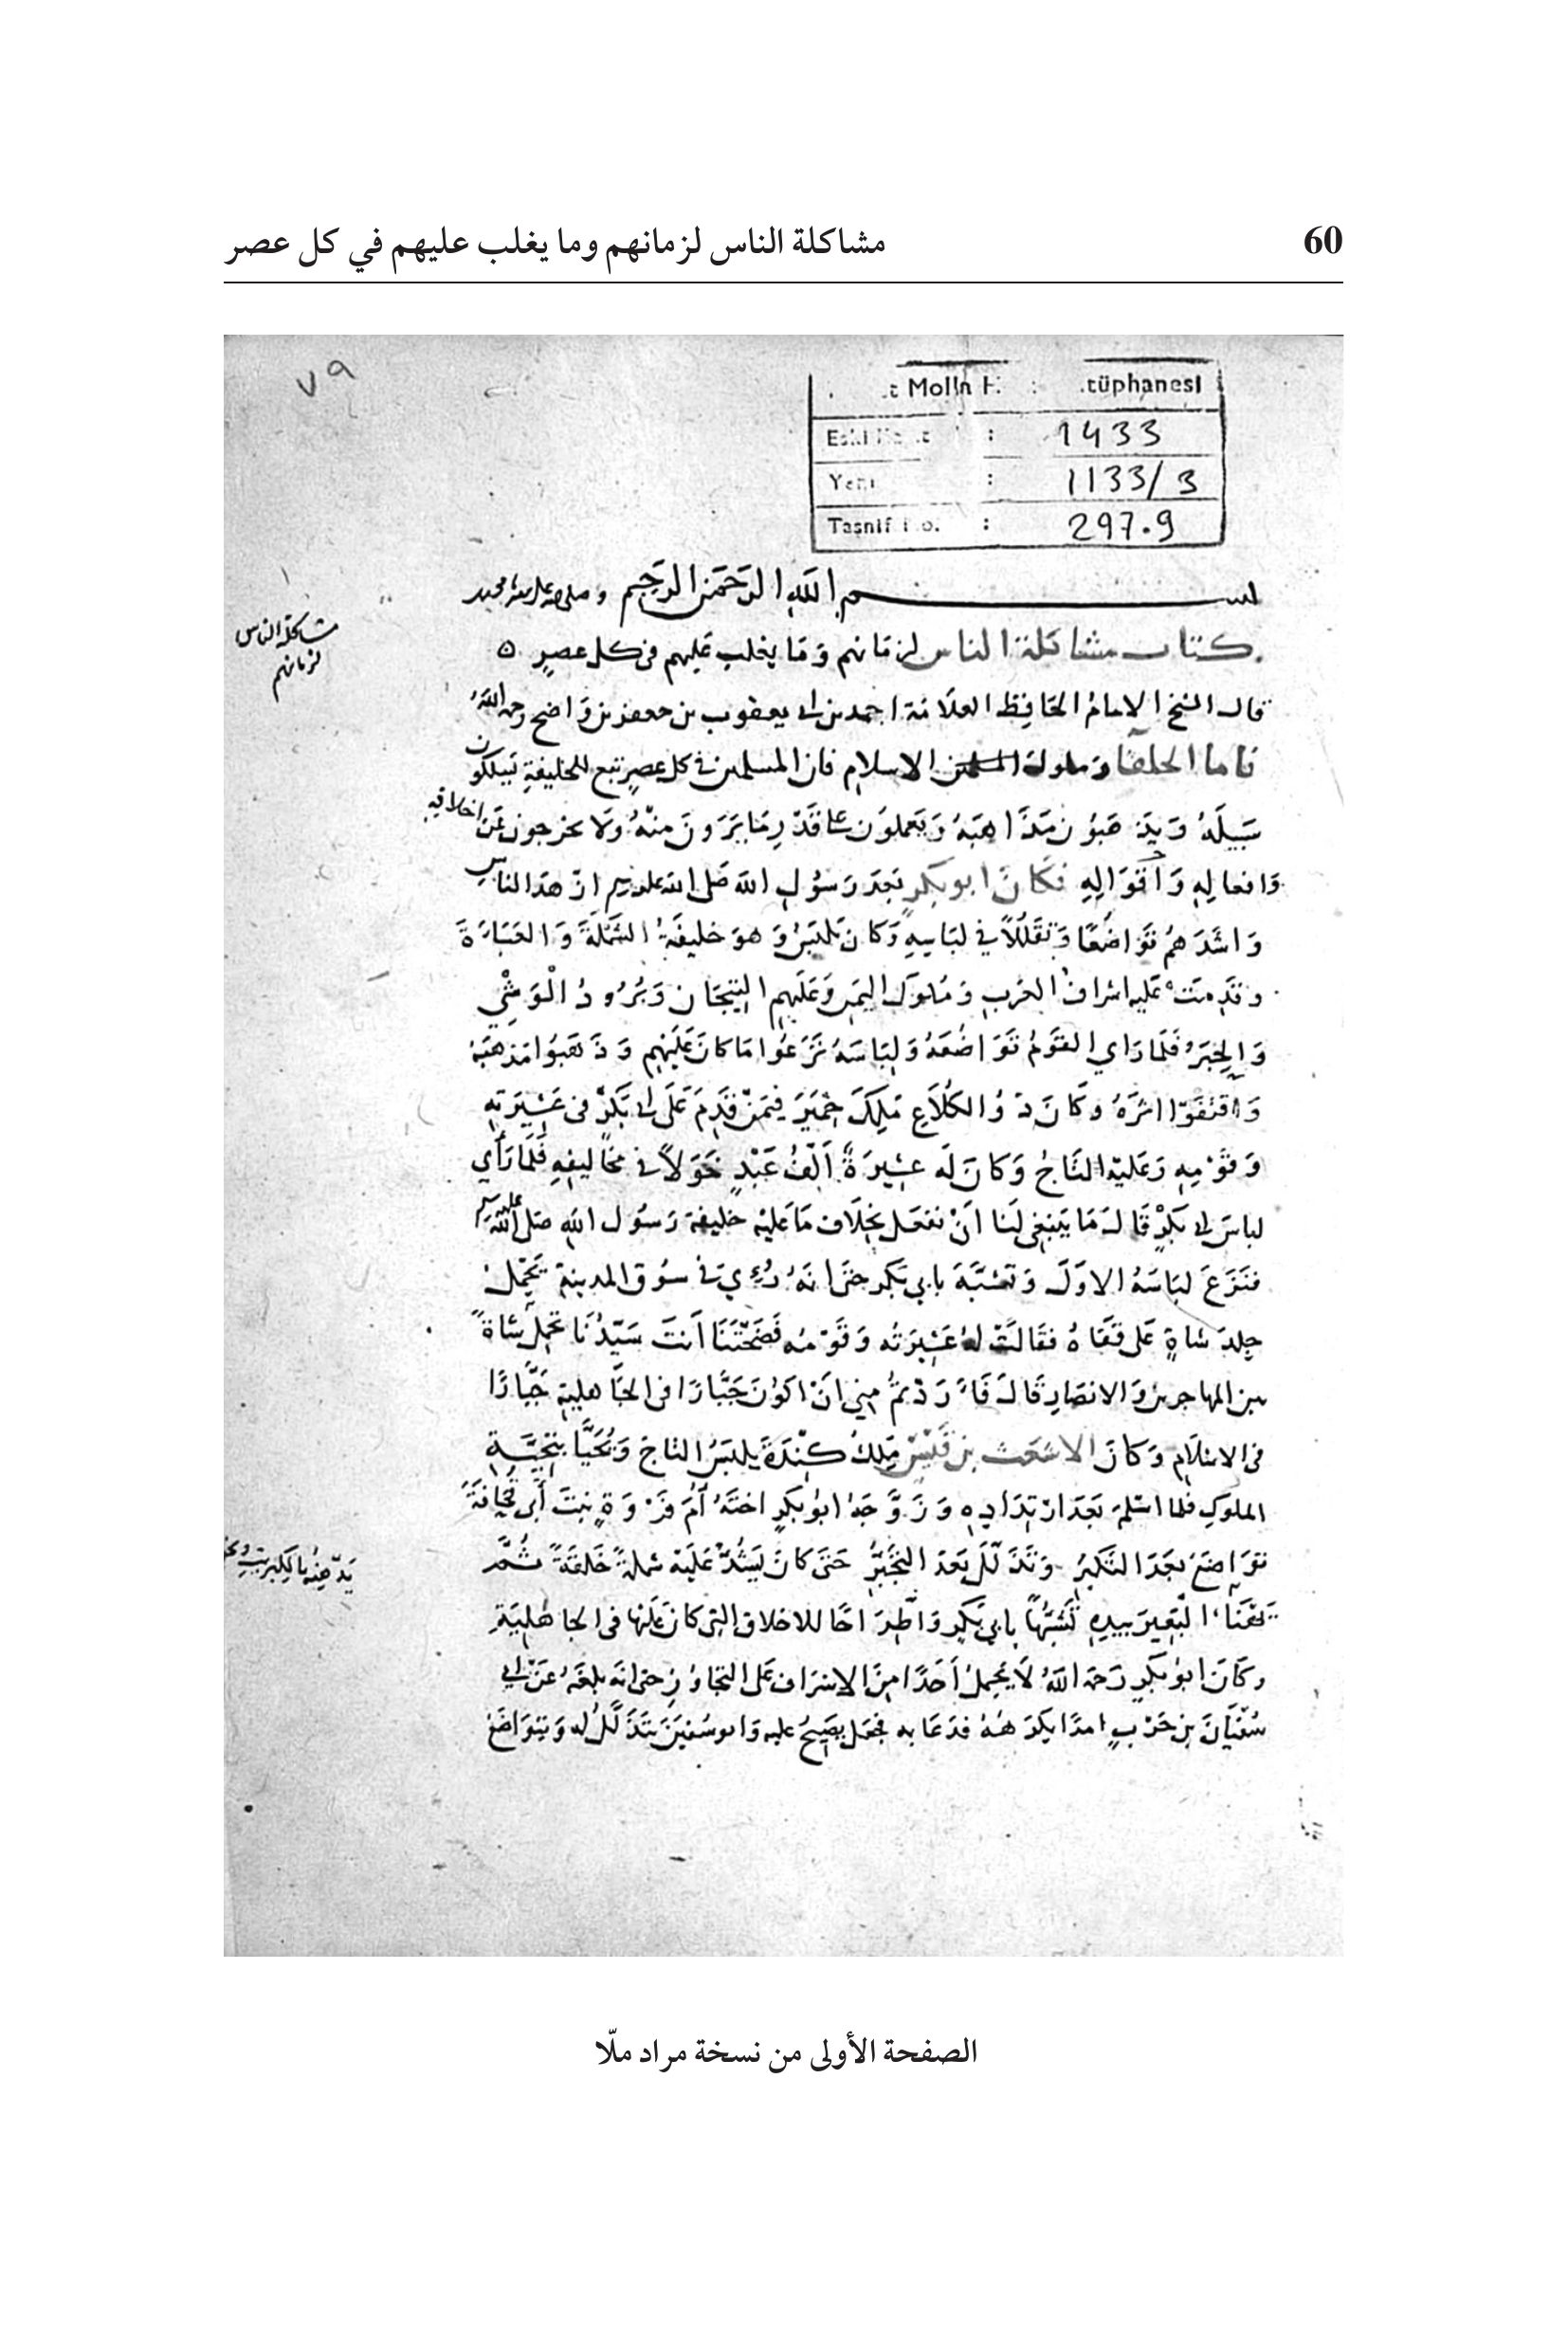 60
مشاكلة الناس لزمانهم وما يغلب عليهم في كل عصر
٧٩
Molla tüphanesi
Eski : 1433
Yeni : 1133/3
Tasnif No. : 297.9
بسم الله الرَّحَمَن الرَّحِيم و صلى الله على سيدنا محمد
مشاكلة الناس
لزمانهم
كتاب مشاكلة الناس لزمانهم وَمَا يغلب عَليهم فى كل عصرٍ ٥
قال الشيخ الامامُ الحَافِظ العلَّامة احمد بن ابى يعقوب بن جعفر بن وَاضح رحمه اللهُ
فاما الخلفا وملوك الاسلام فان المسلمين فى كل عصرٍ تبع للخليفةِ يَسلكون
سَبيلَهُ وَيذهَبوُن مَذَاهِبَهُ وَيَعملوُن عَلَى قَدْرِ مَا يَرَونَ منْهُ ولَا يخرجون عَن اخلاقِهِ
وَافعالِهِ وَاقْوَالِهِ فكَانَ ابو بكرٍ بَعد رَسُول الله صَلى الله عليه وسلم ازهد الناسِ
وَاشَدهمُ تَوَاضُعًا وَتقَلُلًا في لبَاسِهِ وَكانَ يَلبَسُ وَهوَ خليفَةُ الشَمْلَةَ وَالعَبَاءَةَ
وقَدِمَتْ عَليه اشراف العَرَبِ وَمُلوكَ اليَمَنِ وَعَلَيهِم التِيجَان وَبُرُودُ الْوَشْي
وَالحِبَرُ فَلمَا رَاي القَوَمُ تَوَاضُعَهُ وَلِبَاسَهُ نَزَعُوا مَا كانَ عَلَيْهِم وَذَهَبُوا مَذهَبَهُ
وَاقتَفَوْا اثرَهُ وكَانَ ذُو الكُلاعِ مَلِكَ حِمْيَرَ فيمَنْ قَدِمَ عَلَى ابى بَكرٍ فى عَشِيرَتِهِ
وَقَوْمِهِ وَعَليْهِ التَاجُ وَكانَ لَه عشِيرَةٌ اَلْفُ عَبْدٍ خَوَلًا فى مخَاليفِهِ فَلَمَا رَأي
لباسَ ابى بَكرٍ قَالَ مَا يَنبَغي لَنا انْ نفعَل بخِلَافِ مَا عَليْهِ خليفة رَسُول الله صَلى الله عليه وسلم
فنَزَعَ لبَاسَهُ الاوَّلَ وَتشَبَّهَ بابي بَكرٍ حتَى انهَ رُءِيَ فى سوُق المدينةِ يَحْمِلُ
جِلدَ شَاةٍ عَلَى قَفَاهُ فقَالَتْ لهُ عَشِيرَتُه وَقَوْمُه فَضَحْتَنَا اَنتَ سَيّدُنَا تحْمِلُ شاةً
بين المهاجرين وَالانصَارِ قَالَ فَاَرَدْتُمْ مِني انْ اكوُنَ جَبَّارًا فى الجَاهليةِ جَبَّارًا
فى الاسْلَامِ وَكانَ الاشعَث بن قَيسٍ مَلِكُ كِنْدَةَ يَلبَسُ التاجَ وَيُحَيَّا بتَحِيَّةِ
الملوكِ فلما اسْلَمَ بَعَدَ ارْتِدَادِهِ وَزَوَّجَهُ ابوُ بَكرٍ اختَهُ اُمَ فَرْوَةٍ بنتَ اَبى قُحَافَةَ
توَاضَعَ بَعَدَ التَكبُرِ وَتَذَلّلَ بَعدَ التَجَبُّرُ حَتىَ كانَ يَشُدُّ عَلَيْهِ شملةً خَلقَةً ثُمَّ
يَهْنَاءُ الْبَعِيَر بيدِهِ تَشَبُّهًا بابي بَكرٍ وَاطّرَاحًا للاخلاقِ التِى كانَ عَلَيْها فى الجاهليَةِ
وكَانَ ابوُ بَكرٍ رَحمَه اللهُ لَا يَحمِلُ اَحَدًا مِنَ الاشرَافِ عَلى التجَاوُزِ حتى انهَ بلغَهُ عَنْ ابى
سُفْيَانَ بن حَرْبٍ امرًا يكرَهُهُ فدَعَا به فجعَل يَصِيحُ عليه وَابو سُفينَ يَتَذَلّلُ له وَيَتوَاضَعُ
الصفحة الأولى من نسخة مراد ملّا